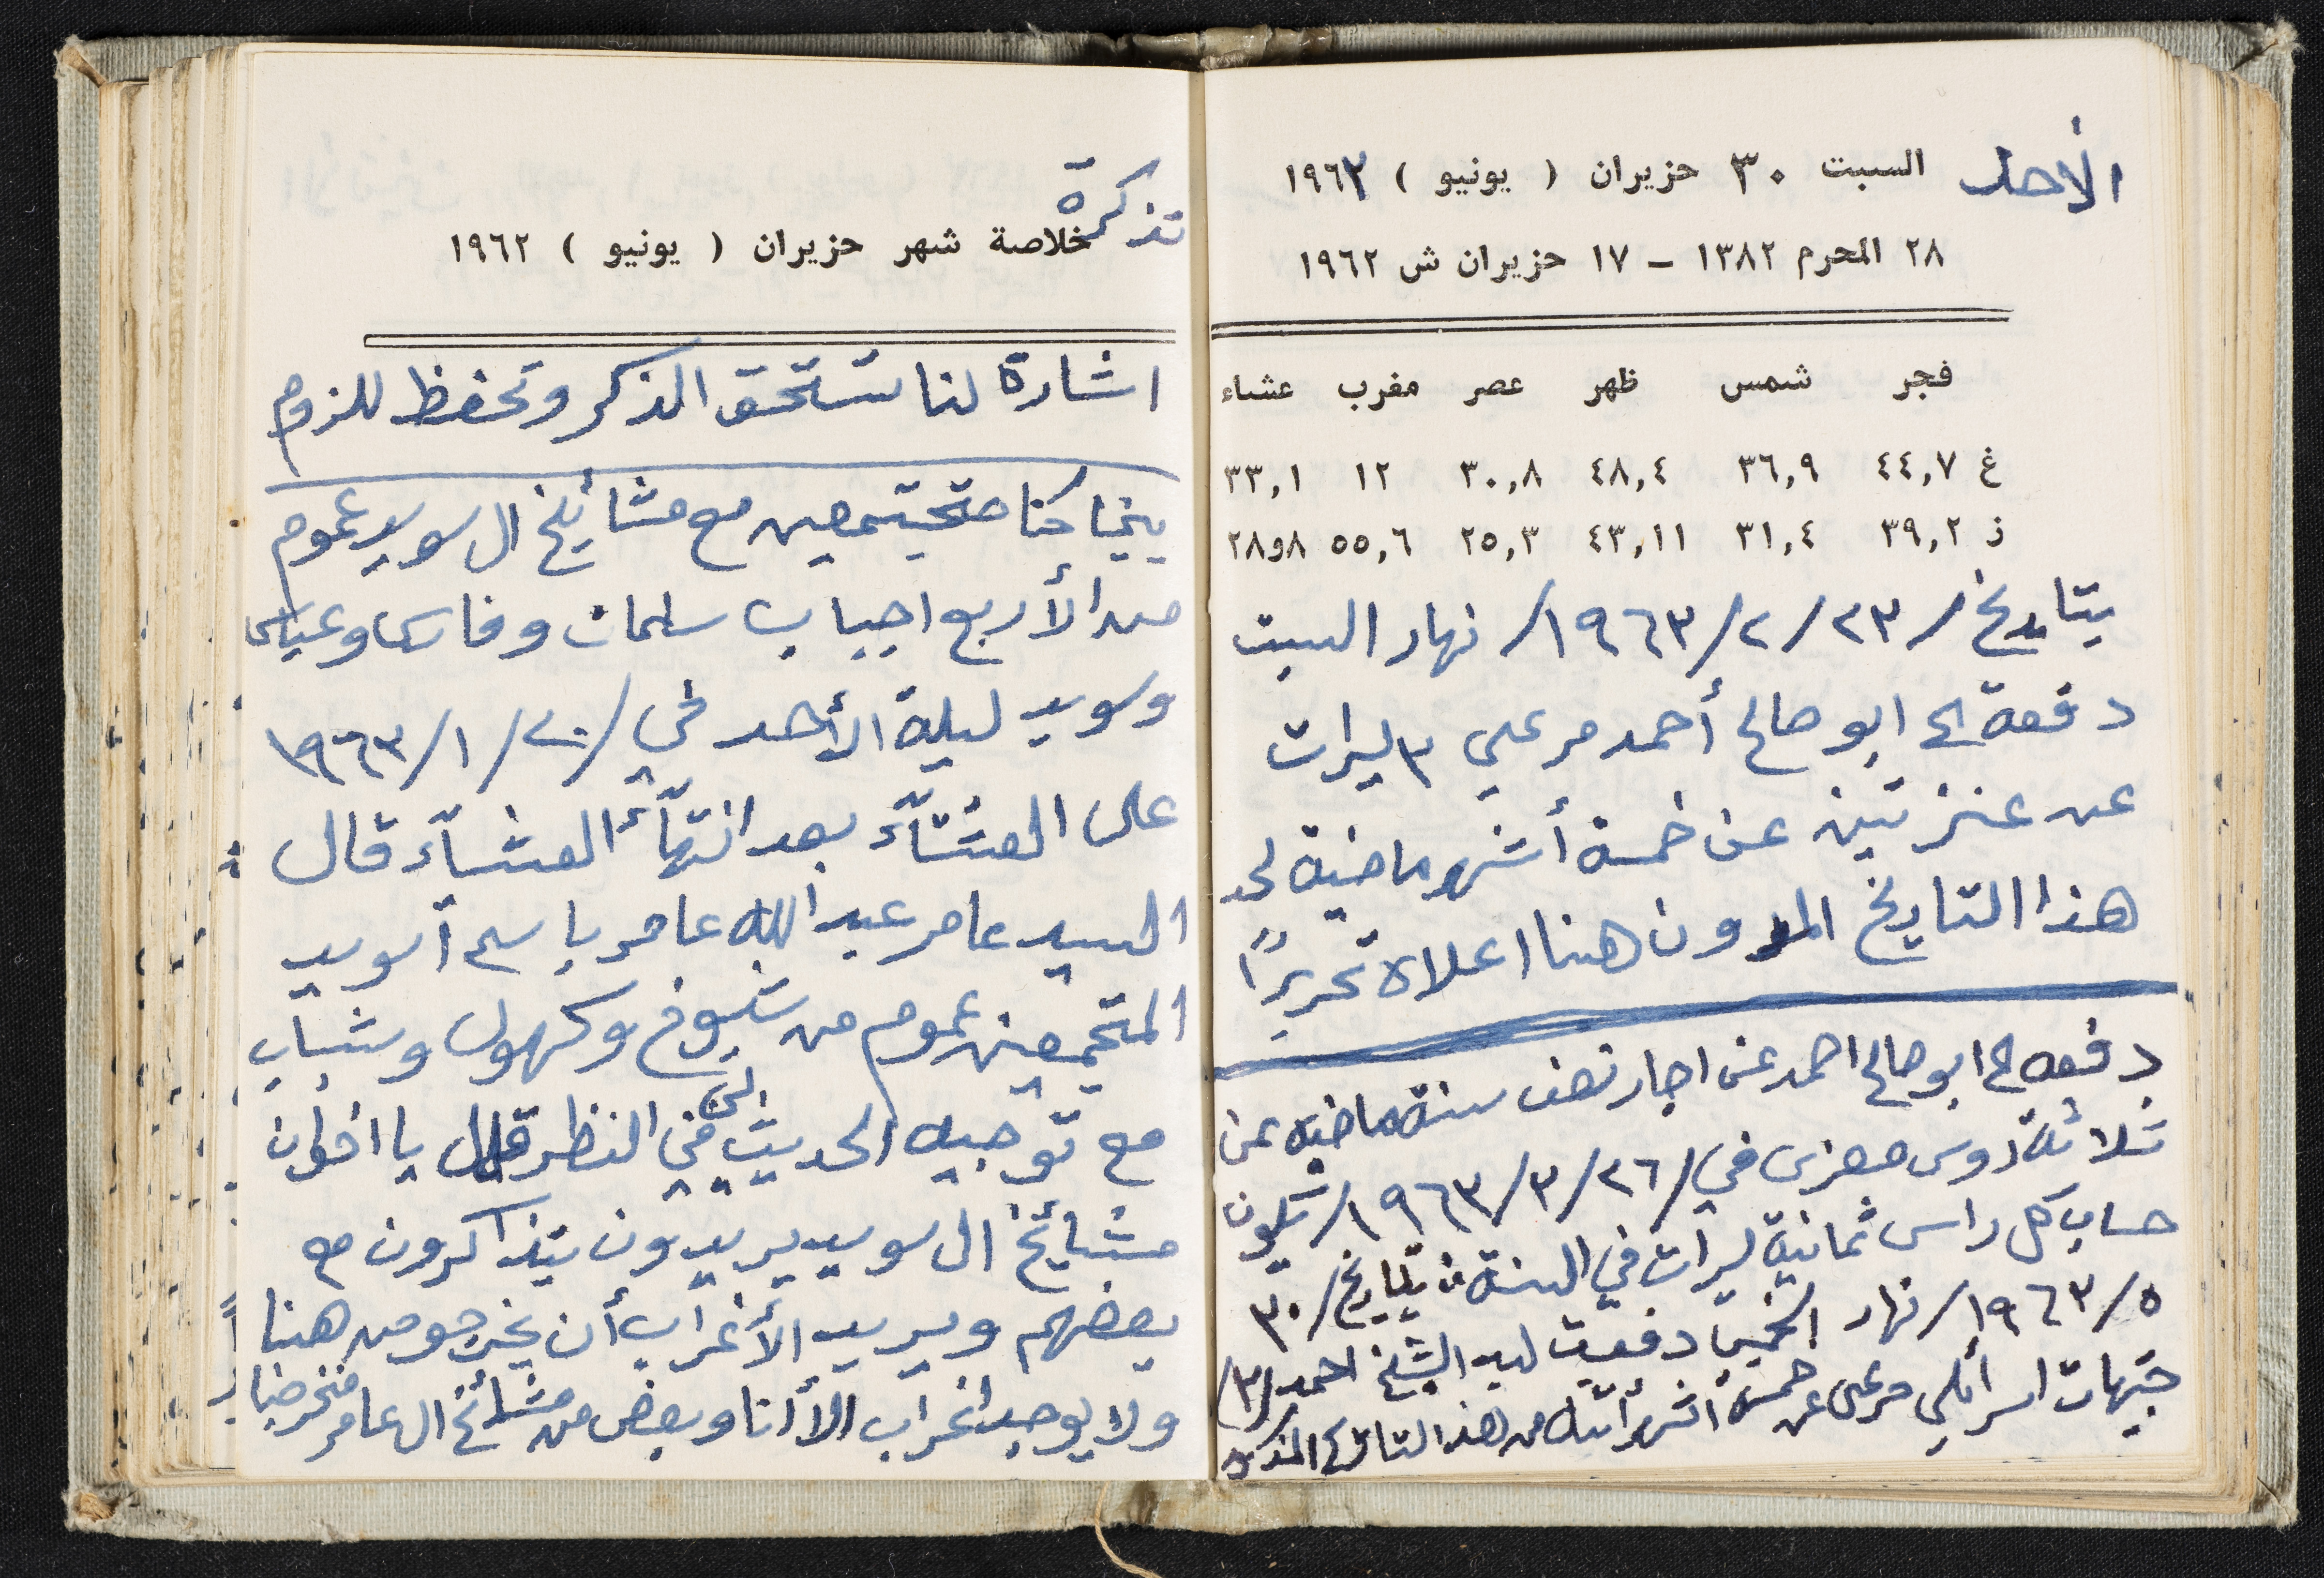 الأحد السبت ٣٠ حزيران ( يونيو ) ١٩٦٣
٢٨ المحرم ١٣٨٢ – ١٧ حزيران ش ١٩٦٢
فجر شمس ظهر عصر مغرب عشاء
غ ٤٤,٧ ٣٦,٩ ٤٨,٤ ٣٠,٨ ١٢ ٣٣,١
ز ٣٩,٢ ٣١,٤ ٤٣,١١ ٢٥,٣ ٥٥,٦ ٨و٢٨
بتاريخ / ٢٣ / ٢ / ١٩٦٣ / نهار السبت
دفعة الى ابو صالح أحمد مرعي ٣ ليرات
عن عنزتين عن خمسة أشهر ماضية لحد
هذا التاريخ المدون هنا اعلاه تحريرًا
دفعه ابو صالح احمد عن اجار نصف سنة ماضيه عن
ثلاثة روس معزى في / ٢٦ / ٣ / ١٩٦٣ / تكون
حساب كل راس ثمانية ليرات في السنة بتاريخ / ٣٠
٥ / ١٩٦٣ / نهار الخميس دفعت ليد الشيخ احمد / ٣ /
جنيهات اسرائلي مرعى عن خمسة اشهر من هذا التاريخ المذكور
تذكرة
خلاصة شهر حزيران ( يونيو ) ١٩٦٢
اشارة لنا تستحق الذكر وتحفظ للزوم
بينما كنا متجتمعين مع مشائخ ال سويد عموم
من الأربع اجباب سلمان وفارس وعباس
وسويد ليلة الأحد في / ٢٠ / ١ / ١٩٦٣
على العشاء بعد انتهاء العشاء قال
السيد عامر عبد الله عامر يا سم آ سويد
المتجمعين عموم من شيوخ وكهول وشباب
مع توجيه الحديث الى في النظر قال يا اخوان
مشايخ ال سويد يريدون يتذاكرون مع
بعضهم ويريد الأغراب أن يخرجو من هنا
ولا يوجد اغراب الا أنا وبعض من مشائخ ال عامر فخرجنا